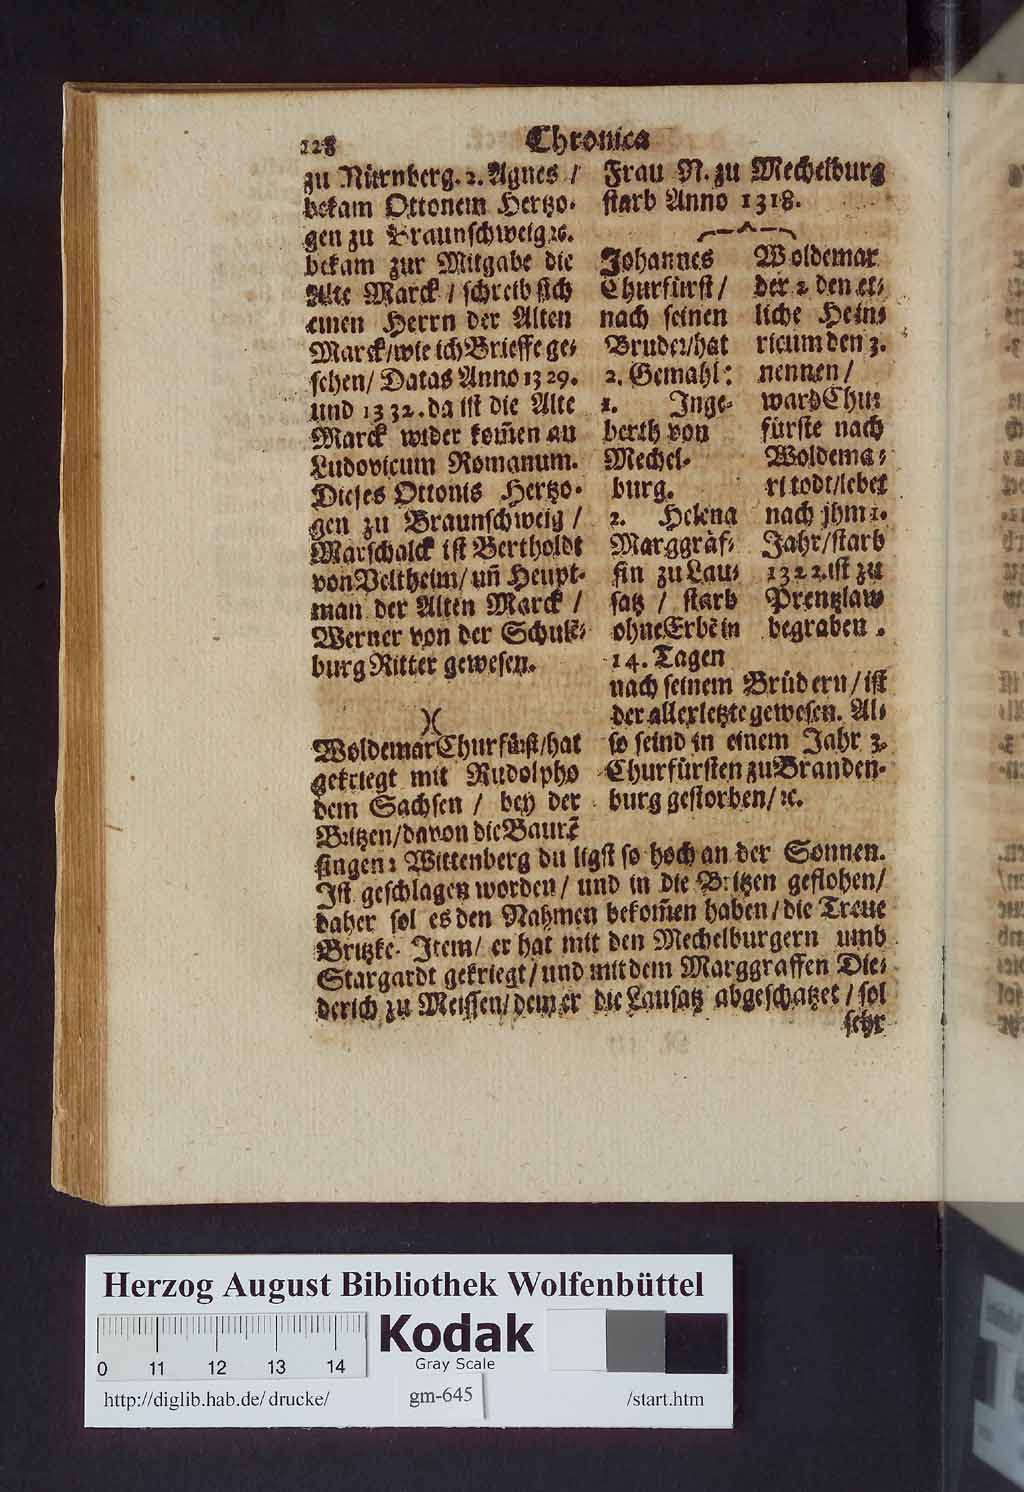 128
Chronica
zu Nürnberg. 2. Agnes /
bekam Ottonem Hertzo-
gen zu Braunschweig ꝛc.
bekam zur Mitgabe die
Alte Marck / schreib sich
einen Herrn der Alten
Marck/wie ich Brieffe ge-
sehen/ Datas Anno 1329.
und 1332. da ist die Alte
Marck wider kom̃en an
Ludovicum Romanum.
Dieses Ottonis Hertzo-
gen zu Braunschweig /
Marschalck ist Bertholdt
von Veltheim/ uñ Heupt-
man der Alten Marck /
Werner von der Schulē-
burg Ritter gewesen.
Woldemar Churfürst/hat
gekriegt mit Rudolpho
dem Sachsen / bey der
Britzen/davon die Baurẽ
Frau N. zu Mechelburg
starb Anno 1318.
Johannes
Churfürst/
nach seinen
Bruder/hat
2. Gemahl:
1. Inge-
berth von
Mechel-
burg.
2. Helena
Marggräf-
fin zu Lau-
satz / starb
ohne Erbẽ in
14. Tagen
Woldemar
der 2. den et-
liche Hein-
ricum den 3.
nennen /
ward Chur
fürste nach
Woldema-
ri todt/lebet
nach jhm 1.
Jahr/starb
1322. ist zu
Prentzlaw
begraben .
nach seinem Brüdern/ ist
der allerletzte gewesen. Al-
so seind in einem Jahr 3.
Churfürsten zu Branden-
burg gestorben/ ꝛc.
singen: Wittenberg du ligst so hoch an der Sonnen.
Ist geschlagen worden / und in die Britzen geflohen/
daher sol es den Nahmen bekom̃en haben / die Treue
Britzke. Item/ er hat mit den Mechelburgern umb
Stargardt gekriegt / und mit dem Marggraffen Die-
derich zu Meissen/ dem er die Lausatz abgeschatzet / sol
sehr
Herzog August Bibliothek Wolfenbüttel
0 11 12 13 14
Kodak
Gray Scale
http://diglib.hab.de/ drucke/
gm-645
/start.htm